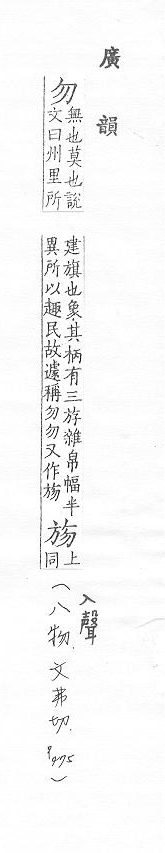 廣韻
勿
無也莫也説
文曰州里所
建旗也象其柄有三斿雜帛幅半
異所以趣民故遽稱勿勿又作𣃦
𣃦
上
同
入聲
(八物. 文弗切. )